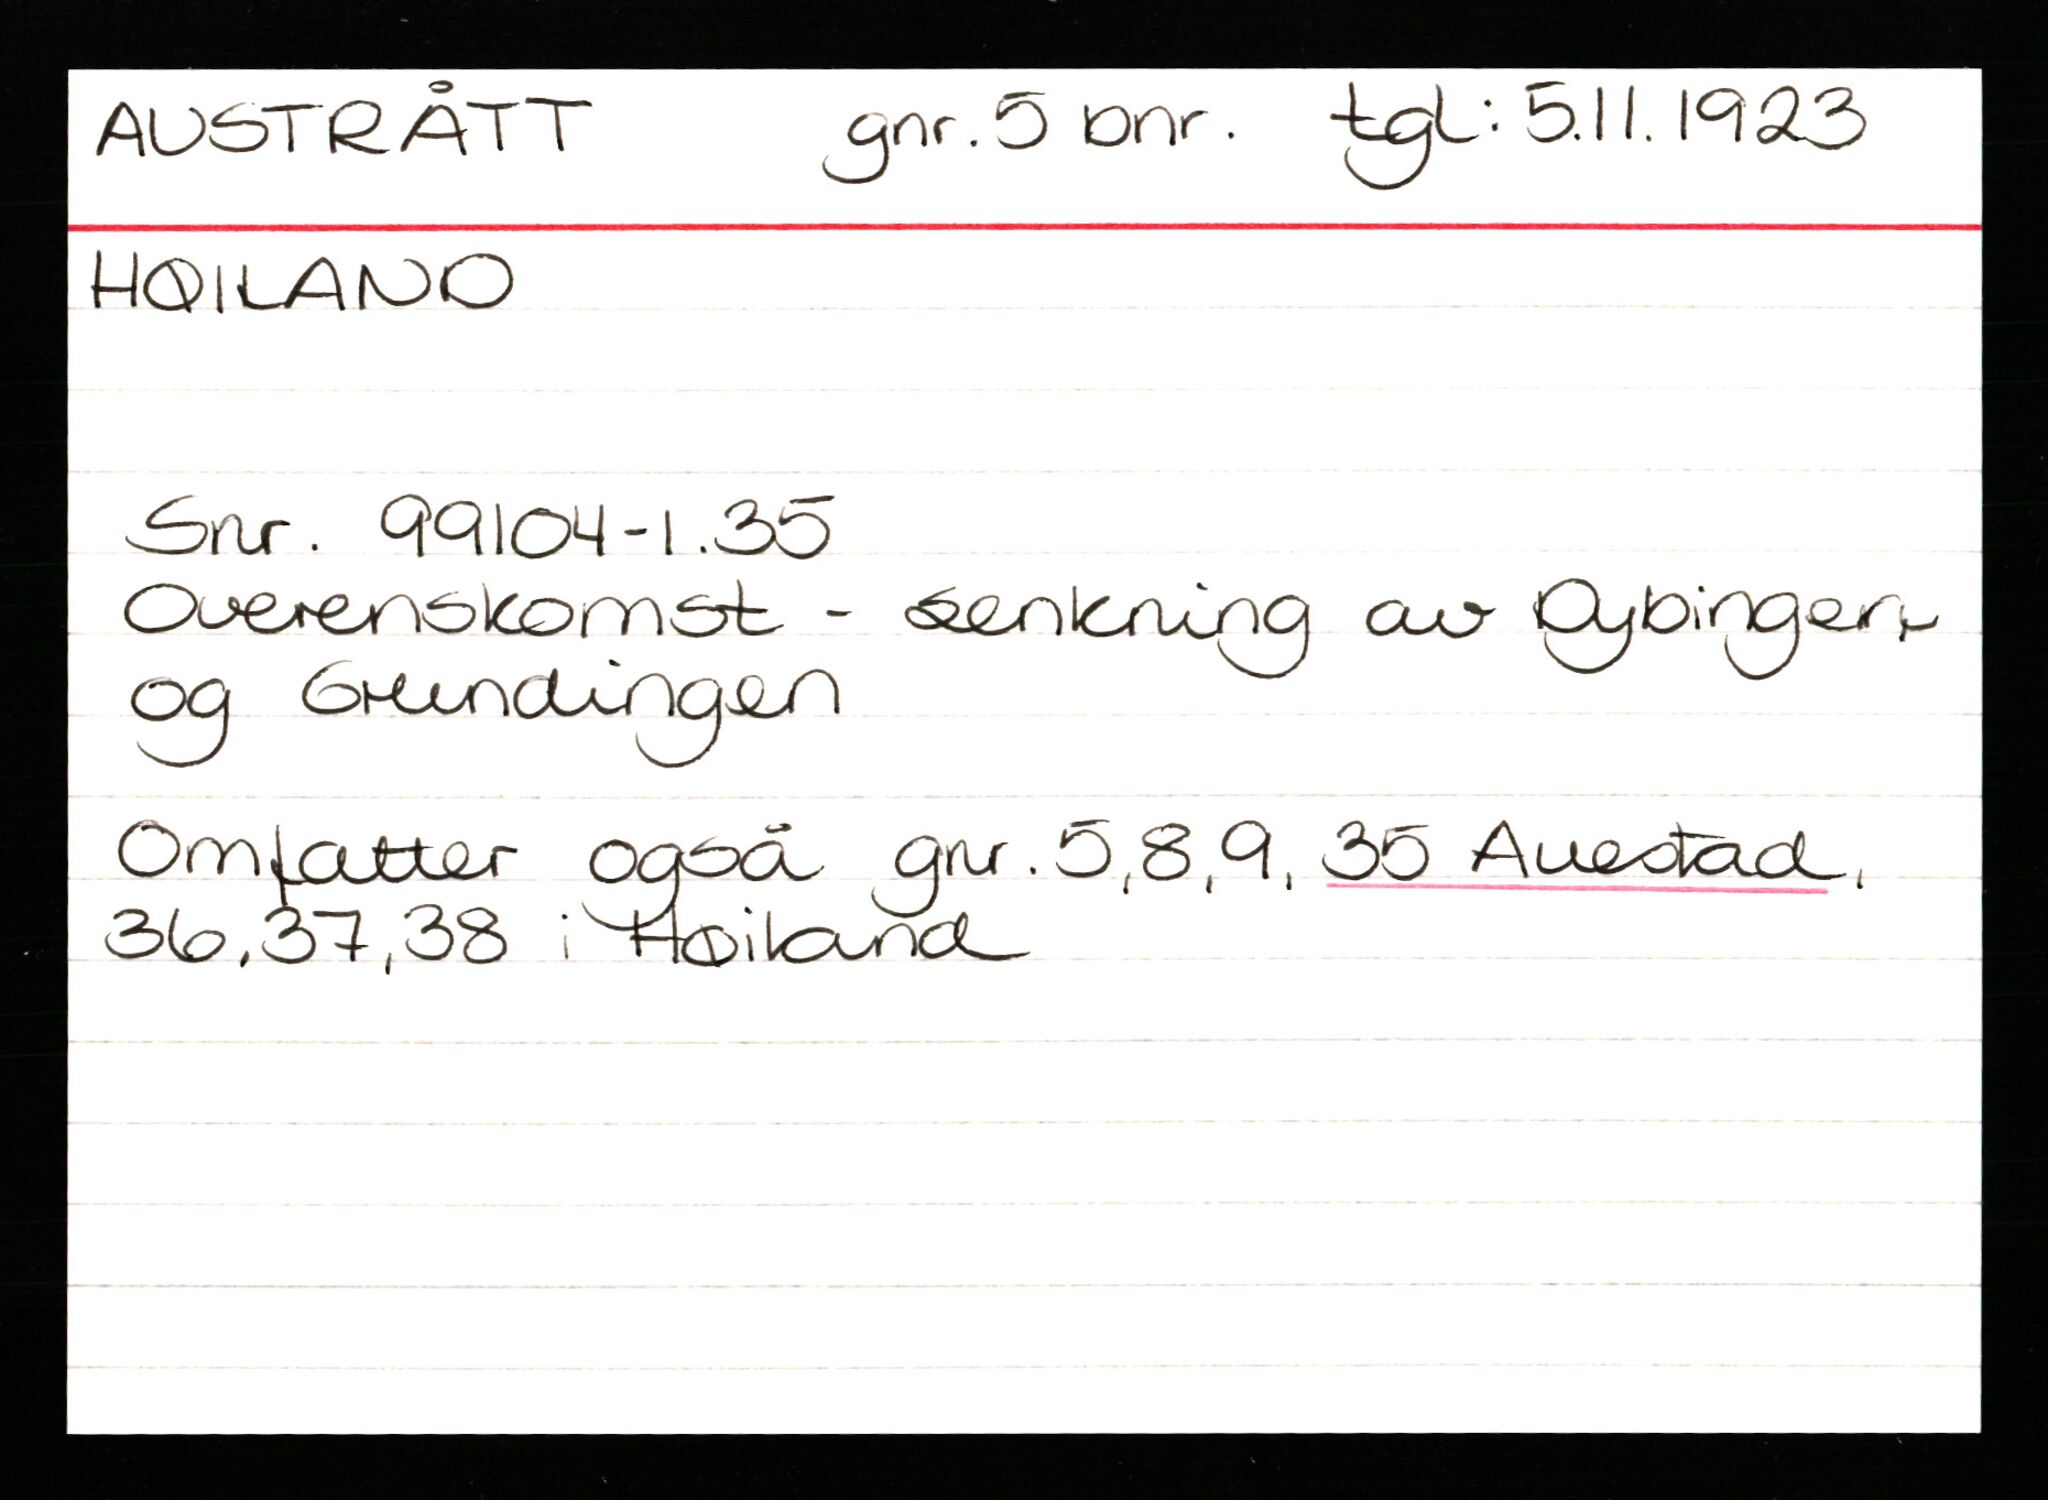 AUSTRÅTT gnr. 5 bnr. tgl: 5.11.1923
HØILAND
Snr. 99104-1.35
Overenskomst - senkning av Dybingen
og Grundingen
Omfatter også gnr. 5,8,9, 35 Auestad,
36,37,38 i Høiland